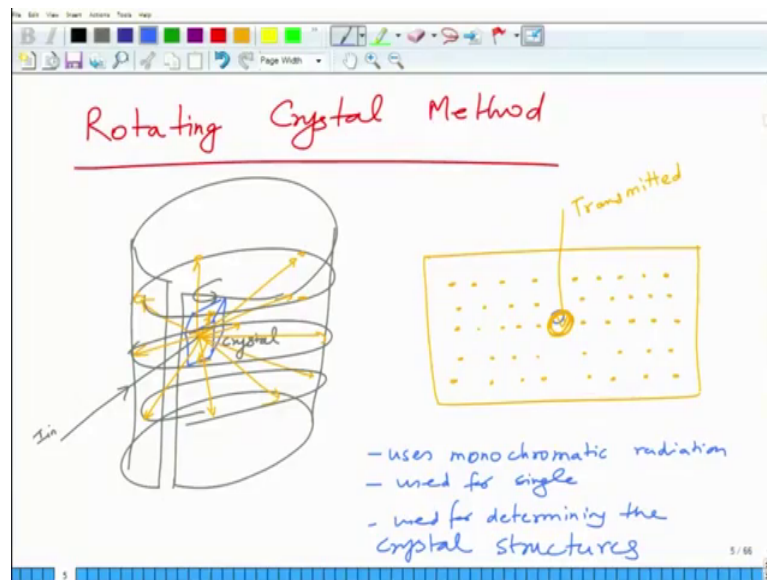 File Edit View Insert Actions Tools Help
B I
Page Width
Rotating Crystal Method
Transmitted
crystal
Iin
- uses monochromatic radiation
- used for single
- used for determining the
crystal structures
5 / 66
5